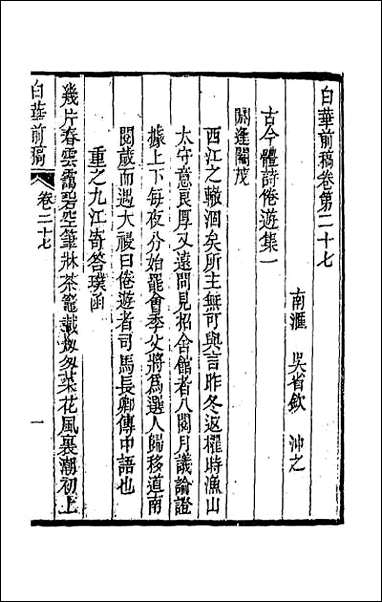 白華前稿卷第二十七
南滙 吳省欽 沖之
古今體詩倦遊集一
閼逢閹茂
西江之轍涸矣所主無可與言昨冬返櫂時漁山
太守意良厚又遠問見招舍館者八閱月議論證
據上下每夜分始罷會季父將為選人歸移道南
閱歲而遇大祲曰倦遊者司馬長卿傳中語也
重之九江寄答璞函
幾片春雲靄碧空筆牀茶竈載怱怱菜花風裏潮初上
白華前稿
卷二十七
一